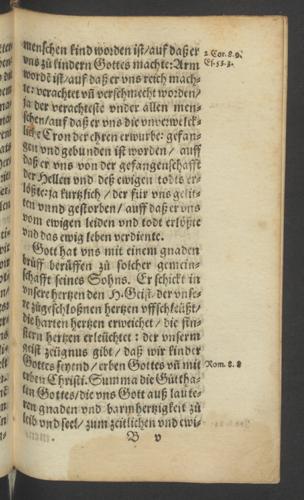 menschen kind worden ist/auf daß er
2 Cor. 8. 9.
vns zů kindern Gottes machte: Arm
Es. 53. 3.
wordē ist/auf daß er vns reich mach-
te: verachtet vñ verschmecht worden/
ja der verachteste vnder allen men-
schen/auf daß er vns die vnverwelck-
liche Cron der ehren erwurbe: gefan-
gen vnd gebunden ist worden/ auff
daß er vns von der gefangenschafft
der Hellen vnd deß ewigen todts er-
lößte: ja kurtzlich / der für vns gelit-
ten vnnd gestorben/ auff daß er vns
vom ewigen leiden vnd todt erlößte
vnd das ewig leben verdiente.
Gott hat vns mit einem gnaden
brüff berüffen zů solcher gemein-
schafft seines Sohns. Er schickt in
vnsere hertzen den H. Geist/ der vnse-
re zůgeschloßnen hertzen vffschleüßt/
die harten hertzen erweichet / die fin-
stern hertzen erleüchtet : der vnserm
geist zeügnus gibt / daß wir kinder
Gottes seyend/ erben Gottes vñ mit
Rom. 8. 8
erben Christi. Summa die Gůttha-
ten Gottes/die vns Gott auß laute-
ren gnaden vnd barmhertzigkeit zů
leib vnd seel/ zum zeitlichen vnd ewi-
B v